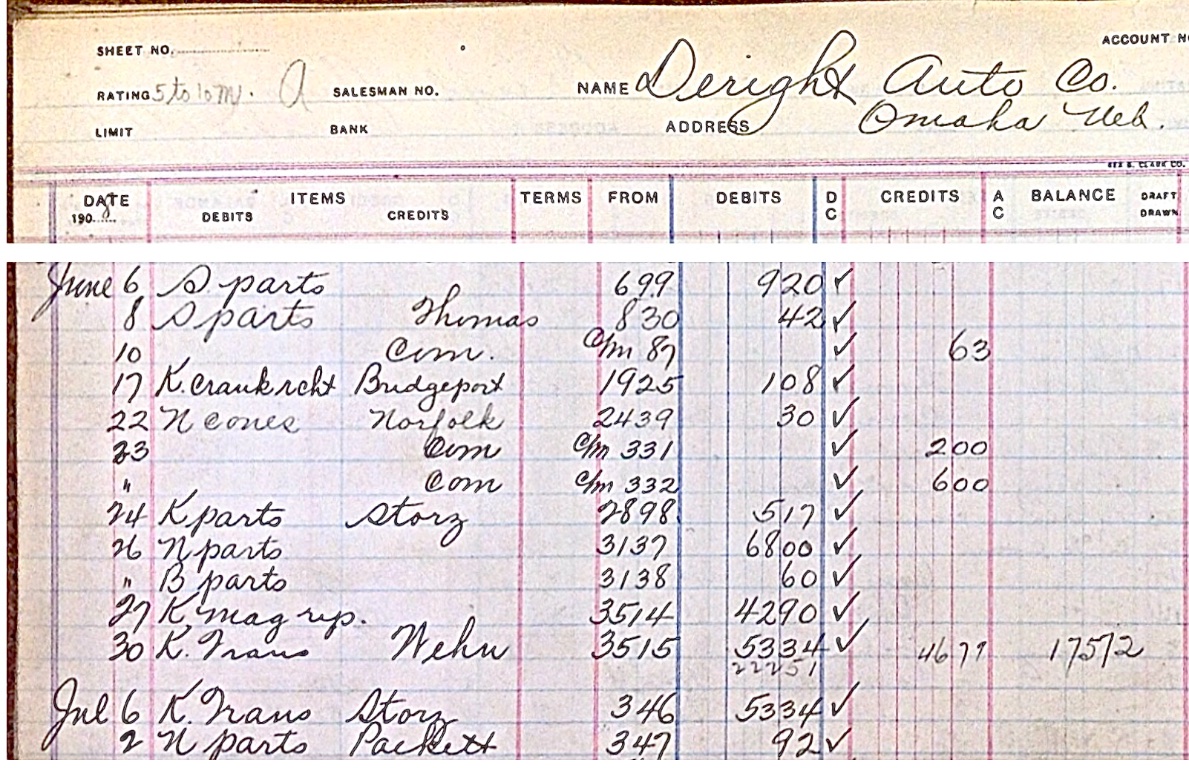 SHEET NO. ACCOUNT N
RATING 5 to 10 M. A SALESMAN NO. NAME Deright Auto Co.
LIMIT BANK ADDRESS Omaha Neb.
DATE ITEMS TERMS FROM DEBITS D C CREDITS A C BALANCE DRAFT DRAWN
190 9 DEBITS CREDITS
June 6 S parts 699 920 ✓
8 S parts Thomas 830 42 ✓
10 Com. C/m 87 ✓ 63
17 K. crank rcht Bridgeport 1925 108 ✓
22 N cones Norfolk 2439 30 ✓
23 Com C/m 331 ✓ 200
" Com C/m 332 ✓ 600
24 K parts Storz 2898 517 ✓
26 N parts 3137 6800 ✓
" B parts 3138 60 ✓
27 K. mag rep. 3514 4290 ✓
30 K. Trans Wehn 3515 5334 ✓ 4679 17572
22251
Jul 6 K. Trans Storz 346 5334 ✓
2 N parts Packett 347 92 ✓